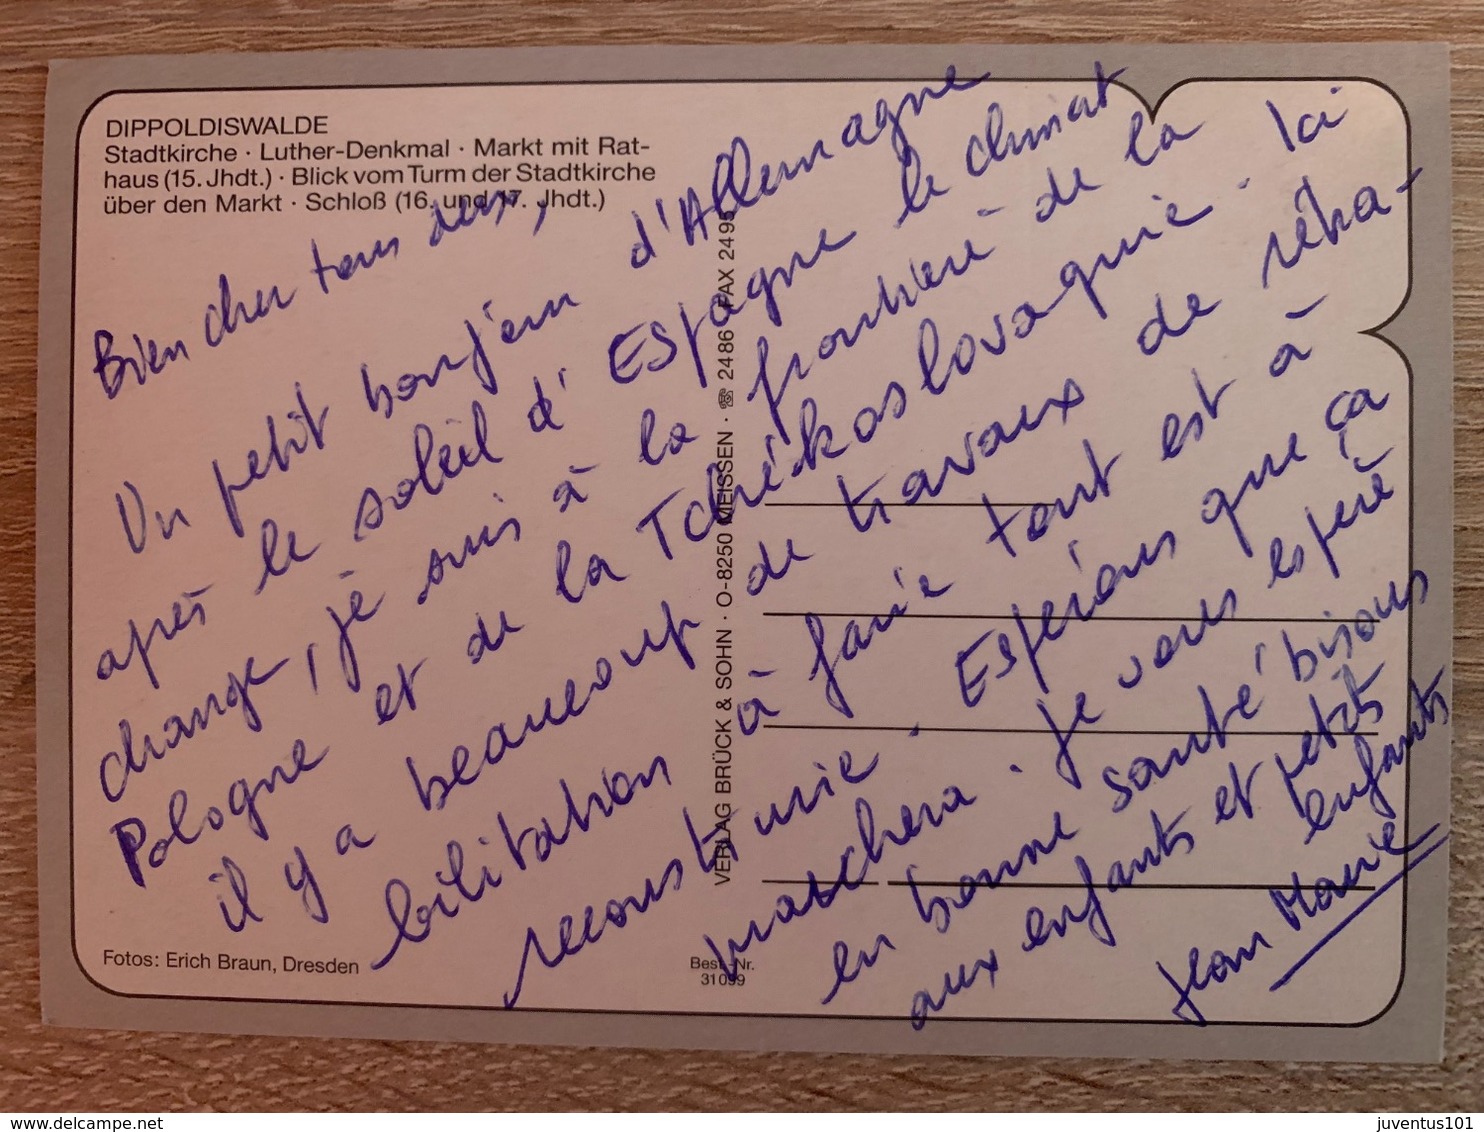 DIPPOLDISWALDE
Stadtkirche · Luther-Denkmal · Markt mit Rat-
haus (15. Jhdt.) · Blick vom Turm der Stadtkirche
über den Markt · Schloß (16. und 17. Jhdt.)
Bien cher tous deux,
Un petit bonjour d'Allemagne
après le soleil d'Espagne le climat
change, je suis à la frontière de la
Pologne et de la Tchékoslovaquie. Ici
il y a beaucoup de travaux de réha-
bilitation à faire tout est à
reconstruire. Espérons que ça
marchera. Je vous espère
en bonne santé bisous
aux enfants et petits
enfants
Jean Marie
VERLAG BRÜCK & SOHN · O-8250 MEISSEN · ☏ 2486 · FAX 2495
Fotos: Erich Braun, Dresden
Best.-Nr.
31099
delcampe.net
juventus101